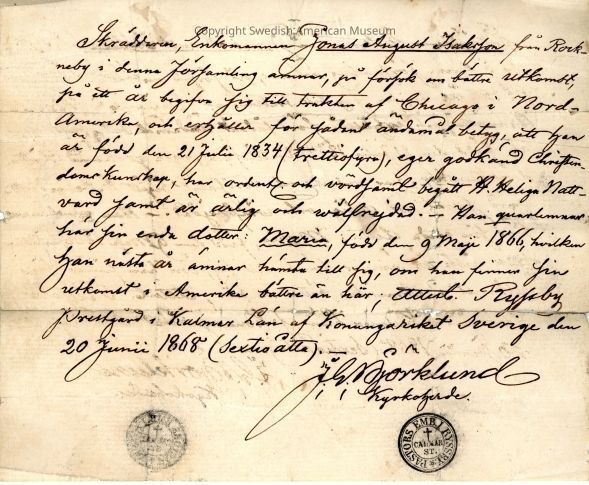 Copyright Swedish American Museum
Skräddaren, Enkomannen Jonas August Isakson från Rock-
neby i denna Församling ämnar, på försök om bättre utkomst,
på ett år begifva sig till trakten af Chicago i Nord-
Amerika, och erhåller för sådant ändamål betyg, att han
är född den 21 Julii 1834 (trettiofyra), eger godkänd Christen-
domskunskap, har ordentl. och vördsamt begått H. Heliga Natt-
vard samt är ärlig och wälfrejdad. — Han quarlemnar
här sin enda dotter: Maria, född den 9 Maji 1866, hvilken
han nästa år ämnar hämta till sig, om han finner sin
utkomst i Amerika bättre än här; attest. Ryssby
Prestgård i Kalmar Län af Konungariket Sverige den
20 Junii 1868 (sextioåtta). —
Björklund
Kyrkoherde.
PASTORS EMB. I RYSSBY
CALMAR
ST.